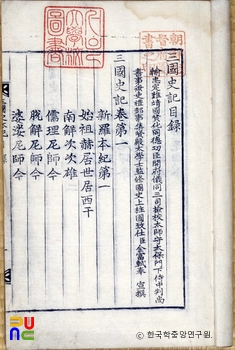 三國史記目錄
輸忠定難靖國贊化同德功臣開府儀同三司檢校太師守太保門下侍中判尚
書吏禮部事集賢殿太學士監修國史上柱國致仕臣金富軾奉 宣撰
三國史記卷第一
新羅本紀第一
始祖赫居世居西干
南解次次雄
儒理尼師今
脫解尼師今
婆娑尼師今
© 한국학중앙연구원